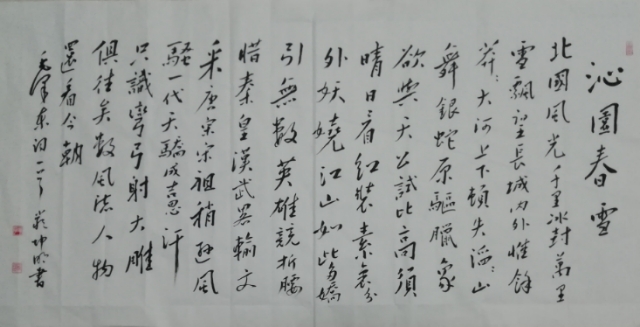 沁園春雪
北國風光千里冰封萬里
雪飄望長城內外惟餘
莽々大河上下頓失滔々山
舞銀蛇原驅臘象
欲與天公試比高須
晴日看紅裝素裹分
外妖嬈江山如此多嬌
引無數英雄競折腰
惜秦皇漢武畧輸文
采唐宗宋祖稍遜風
騷一代天驕成吉思汗
只識彎弓射大雕
俱往矣數風流人物
還看今朝
毛澤東詞一首 坤書